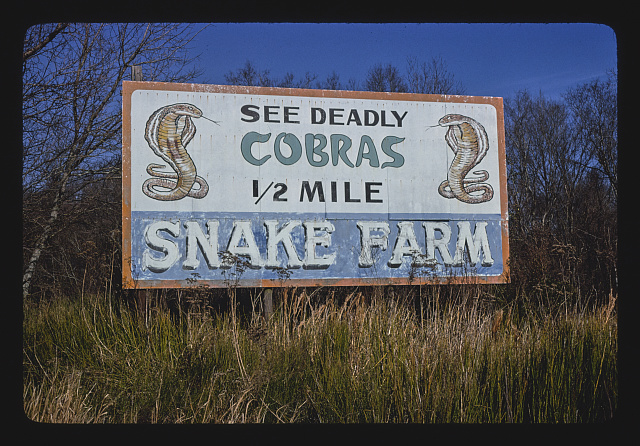 SEE DEADLY
COBRAS
1/2 MILE
SNAKE FARM